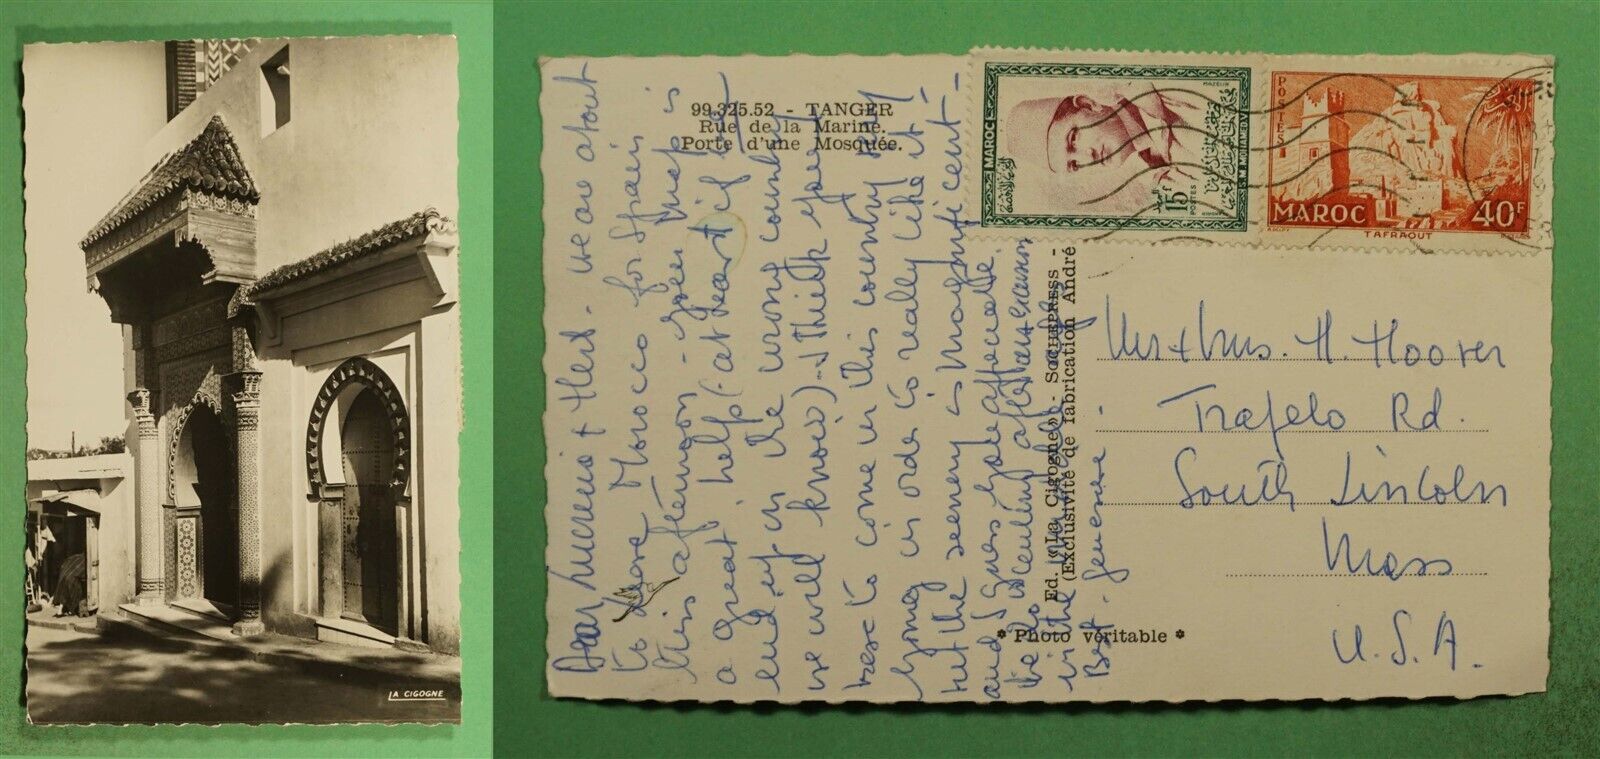 LA CIGOGNE
99.325.52 - TANGER
Rue de la Marine.
Porte d'une Mosquée.
Dear & Herb - we are about
to leave Morocco for Spain
this afternoon - your map is
a great help (- at least if we
end up in the wrong country
we will know) - I think you may
have to come in this country
in order to really like it -
but the scenery is magnificent -
and I guess you'd appreciate.
Best -
Ed. «La Cigogne» - SOCHEPRESS -
(Exclusivité de fabrication André
* Photo véritable *
MAROC
15F
POSTES
S.M. MOHAMED V
MAZELIN
POSTES
MAROC
40F
TAFRAOUT
Mr & Mrs. H. Hoover
Trapelo Rd.
South Lincoln
Mass
U.S.A.